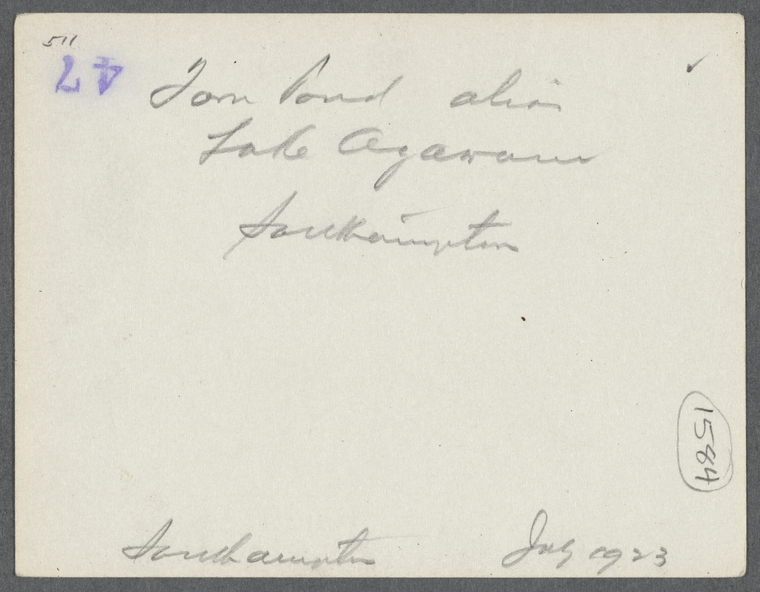 511
47
Town Pond alias
Lake Agawam
Southampton
1584
Southampton July 1923